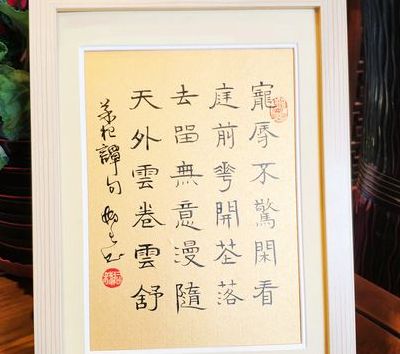 寵辱不驚閑看
庭前花開茖落
去留無意漫隨
天外雲卷雲舒
菜根譚句